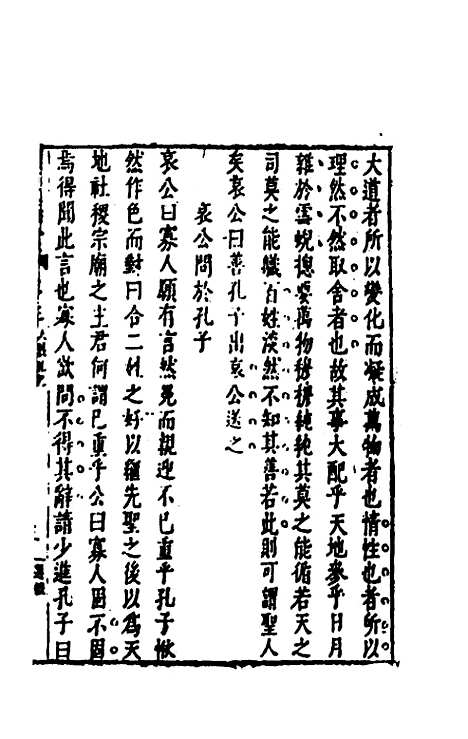 大道者所以變化而凝成萬物者也情性也者所以
理然不然取舍者也故其事大配乎天地參乎日月
雜於雲蜺摠要萬物穆穆純純其莫之能循若天之
司莫之能職百姓淡然不知其善若此則可謂聖人
矣哀公曰善孔子出哀公送之
哀公問於孔子
哀公曰寡人願有言然冕而親迎不巳重乎孔子愀
然作色而對曰合二姓之好以繼先聖之後以為天
地社稷宗廟之主君何謂巳重乎公曰寡人固不固
焉得聞此言也寡人欲問不得其辭請少進孔子曰